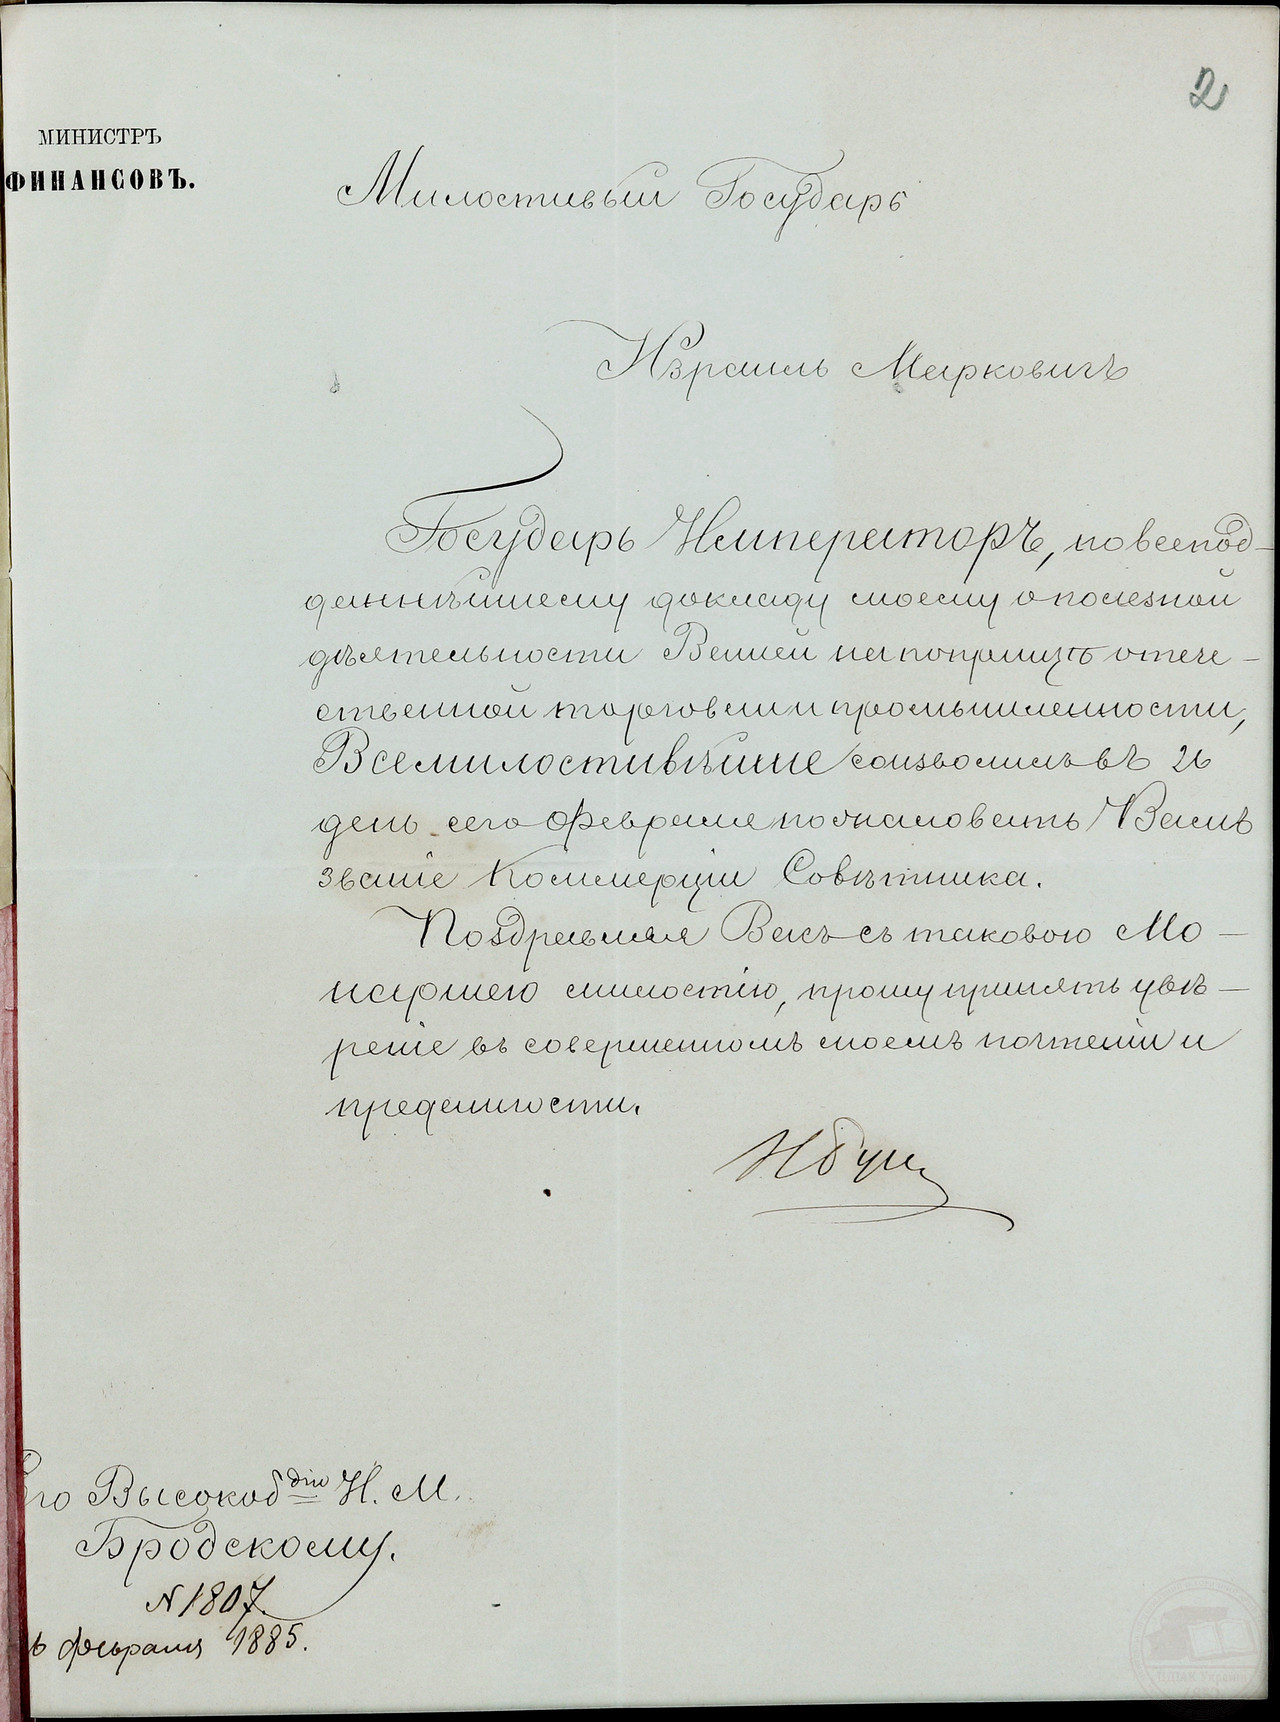 2
МИНИСТРЪ
ФИНАНСОВЪ.
Милостивый Государь
Израиль Марковичъ
Государь Императоръ, по всепод-
даннѣйшему докладу моему о полезной
дѣятельности Вашей на поприщѣ отече-
ственной торговли и промышленности,
Всемилостивѣйше соизволилъ въ 26
день сего Февраля пожаловать Вамъ
званіе Коммерціи Совѣтника.
Поздравляя Васъ съ таковою Мо-
наршею милостію, прошу принять увѣ-
реніе въ совершенномъ моемъ почтеніи и
преданности.
Его Высокобдію И. М.
Бродскому.
N 1807.
февраля 1885.